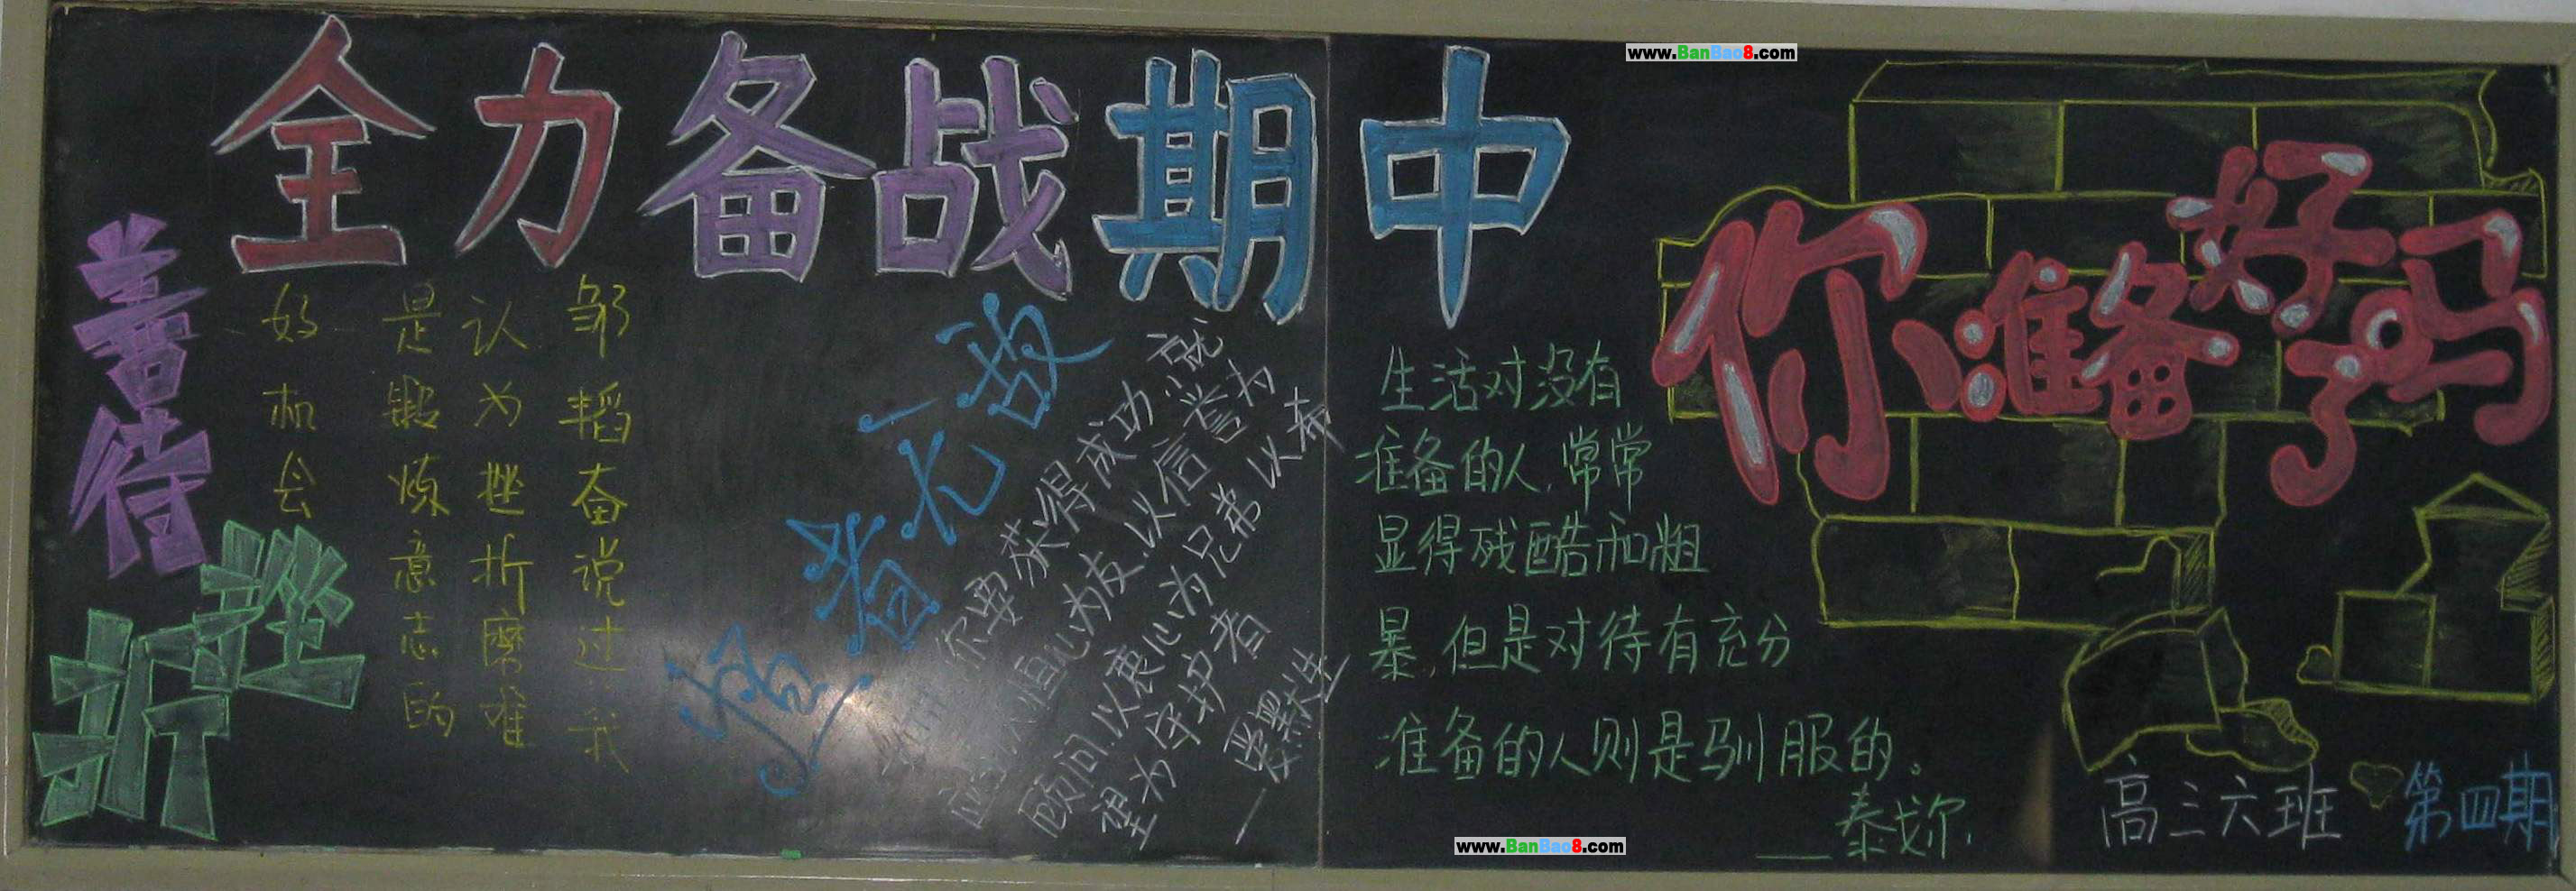 全力备战期中
善待
挫折
邹韬奋说过:我
认为挫折磨难
是锻炼意志的
好机会
强者无敌
你要获得成功,就
应当以恒心为友,以信誉为
顾问,以衷心为兄弟 以希
望为守护者
—爱默生
www.BanBao8.com
你准备好了吗
生活对没有
准备的人,常常
显得残酷和粗
暴,但是对待有充分
准备的人则是驯服的。
——泰戈尔
高三六班 第四期
www.BanBao8.com